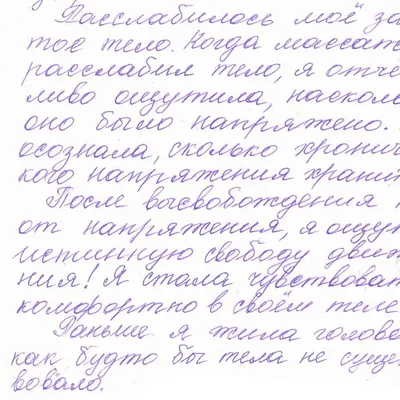 Расслабилось моё за
тое тело. Когда массаж
расслабил тело, я отчё
ливо ощутила, наскол
оно было напряжено.
осознала, сколько хронич
кого напряжения храни
После высвобождения
от напряжения, я ощу
истинную свободу движ
ния! Я стала чувствоват
комфортно в своём теле
Раньше я жила голово
как будто бы тела не суще
вовало.